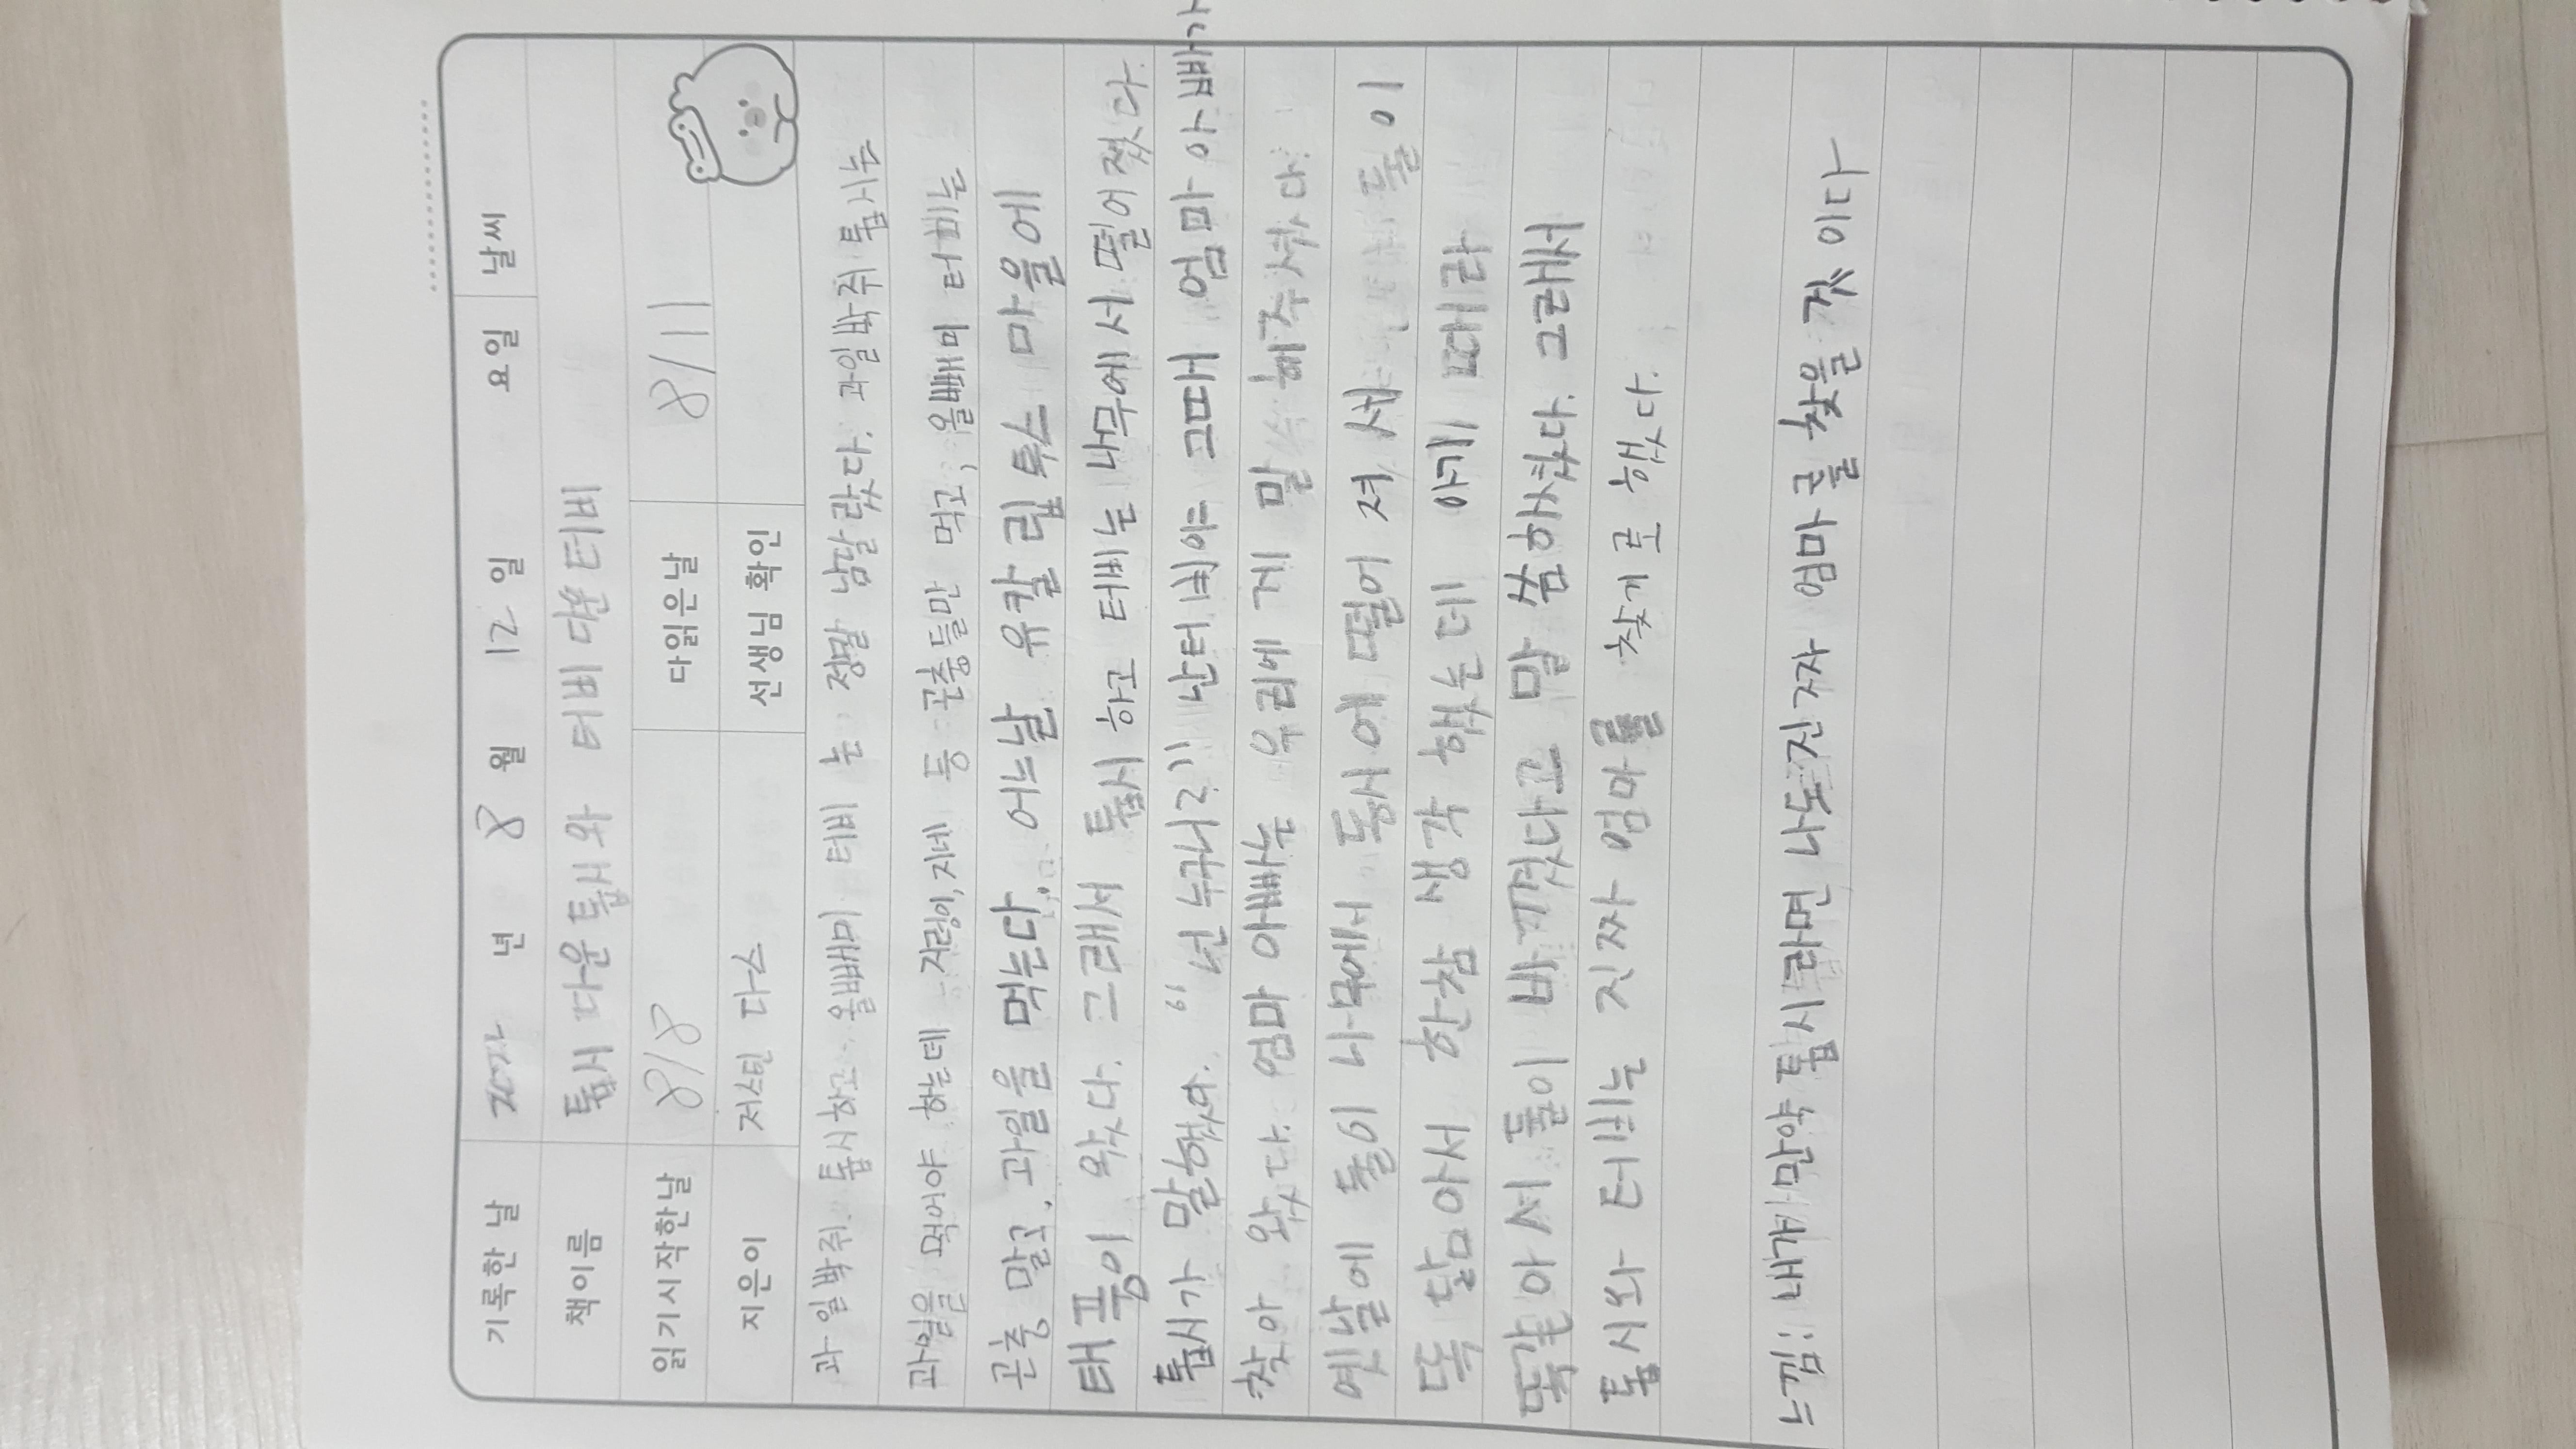 기록한 날 2022 년 8 월 12 일 요일 날씨
책이름 톱시 다운 톱시와 터비 다운 터비
읽기시작한날 8/8 다읽은날 8/11
지은이 저스틴 다스 선생님 확인
과일박쥐 톱시하고 올빼미 터비 는 정말 남달랐다. 과일박쥐 톱시는
과일을 먹어야 하는데 지렁이, 지네 등 곤충들만 먹고, 올빼미 터비는
곤충 말고, 과일을 먹는다. 어느날 유칼립투스 마을에
태풍이 왔다. 그래서 톱시 하고 터비는 나무에서 떨어졌다.
톱시가 말했다. "넌 누구니?" 난터비야 그때 엄마 아빠가
찾아 왔다. 엄마 아빠는 우리에게 말 해주셨다.
옛날에 둘이 나무에서 동시에 떨어 져 서 둘이
똑 닮아서 한참 생각 했는데 아기 때라
똑같아서 둘이 바꼈다고 말씀하셨다. 그래서
톱시와 터비는 진짜 엄마를 찾기로 했다.
느낌: 내가 만약 톱시라면 나도 진짜 엄마를 찾을 것 이다